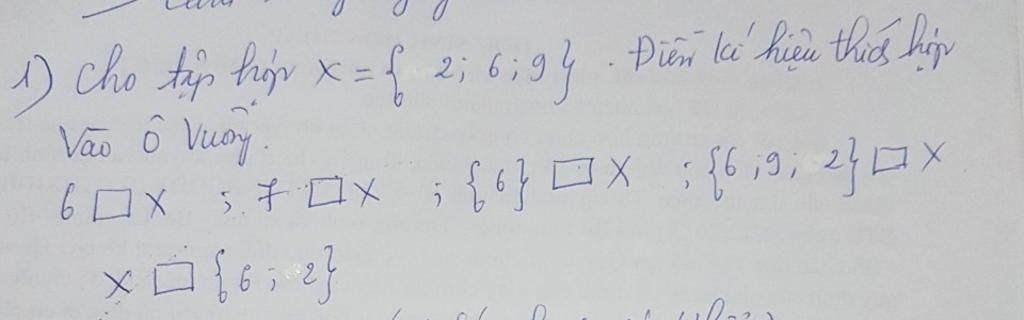 1) Cho tập hợp X = { 2; 6; 9 } . Điền kí hiệu thích hợp
Vào ô Vuông.
6 □ X ; 7 □ X ; {6} □ X ; {6; 9; 2} □ X
X □ {6; 2}